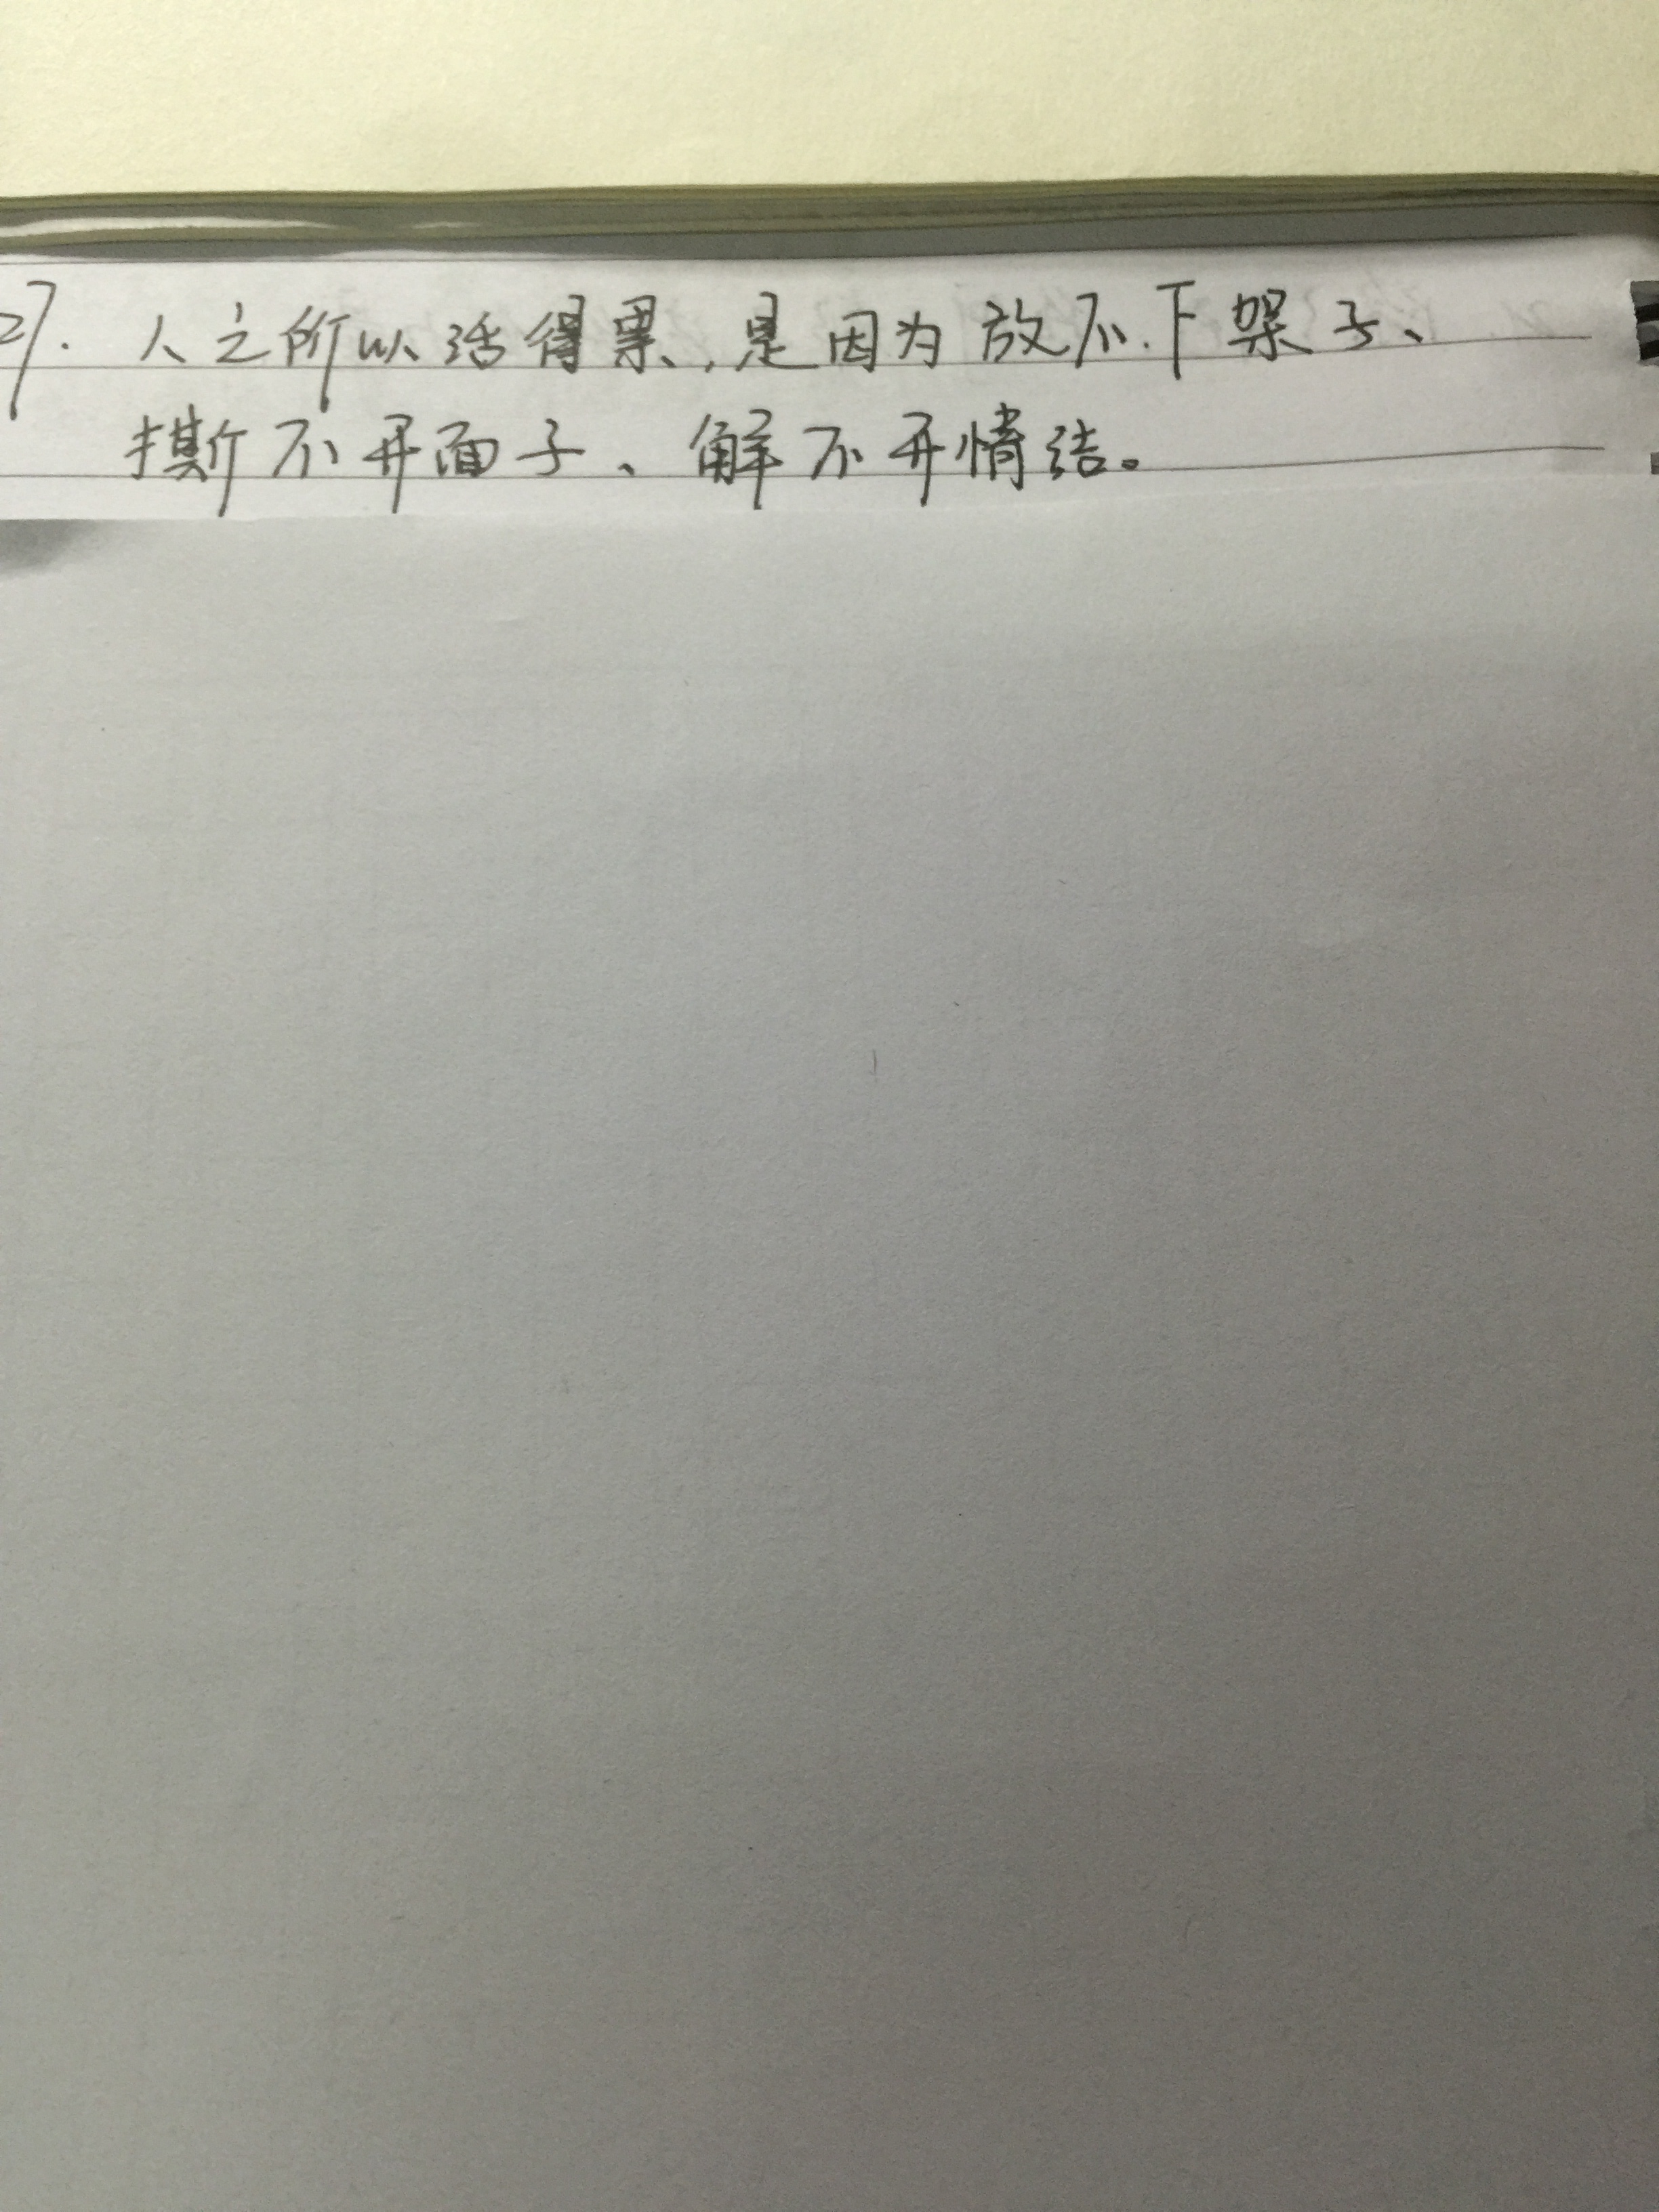 27. 人之所以活得累,是因为放不下架子、
撕不开面子、解不开情结。